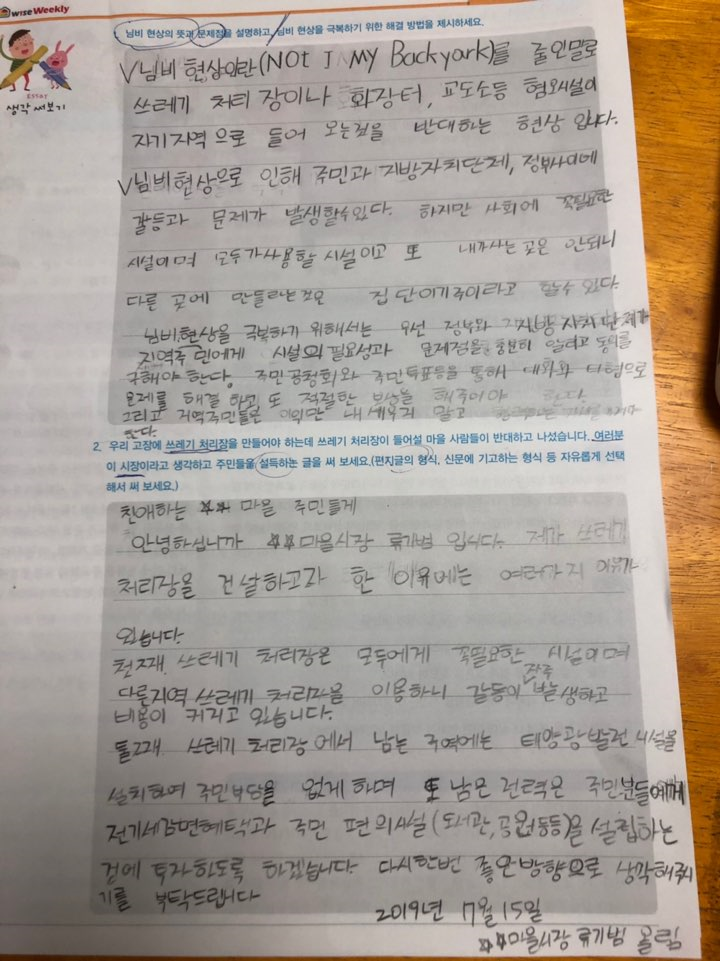 wiseWeekly
ESSAY
생각 써보기
1. 님비 현상의 뜻과 문제점을 설명하고, 님비 현상을 극복하기 위한 해결 방법을 제시하세요.
V님비 현상이란(NOT I MY Backyark)를 줄인말로
쓰레기 처리장이나 화장터, 교도소등 혐오시설이
자기지역으로 들어 오는것을 반대하는 현상 입니다.
V님비현상으로 인해 주민과 지방자치단체, 정부사이에
갈등과 문제가 발생할수있다. 하지만 사회에 꼭필요한
시설이며 모두가사용할 시설이고 또 내가사는 곳은 안되니
다른 곳에 만들라는것은 집단이기주이라고 할수 있다.
님비현상을 극복하기 위해서는 우선 정부와 지방자치단체가
지역주민에게 시설의 필요성과 문제점을 충분히 알리고 동의를
구해야 한다. 주민공청회와 주민투표등을 통해 대화와 타협으로
문제를 해결하고 또 적절한 보상을 해주어야 한다.
그리고 지역주민들은 이익만 내세우지 말고
한다.
2. 우리 고장에 쓰레기 처리장을 만들어야 하는데 쓰레기 처리장이 들어설 마을 사람들이 반대하고 나섰습니다. 여러분
이 시장이라고 생각하고 주민들을 설득하는 글을 써 보세요.(편지글의 형식, 신문에 기고하는 형식 등 자유롭게 선택
해서 써 보세요.)
친애하는 ☆☆ 마을 주민들게
안녕하십니까 ☆☆마을시장 류기범 입니다. 제가 쓰레기
처리장을 건설하고자 한 이유에는 여러가지 이유가
있습니다.
첫재, 쓰레기 처리장은 모두에게 꼭필요한 시설이며
다른지역 쓰레기 처리장을 이용하니 갈등이 자주 발생하고
비용이 커지고 있습니다.
둘재, 쓰레기 처리장에서 남는 구역에는 태양광발전 시설을
설치하여 주민부담을 없게하며 또 남은 전력은 주민분들에게
전기세감면혜택과 주민 편의시설(도서관,공원등등)을 설립하는
것에 투자하도록 하겠습니다. 다시한번 좋은방향으로 생각해주시
기를 부탁드립니다
2019년 7월 15일
☆☆마을시장 류기범 올림